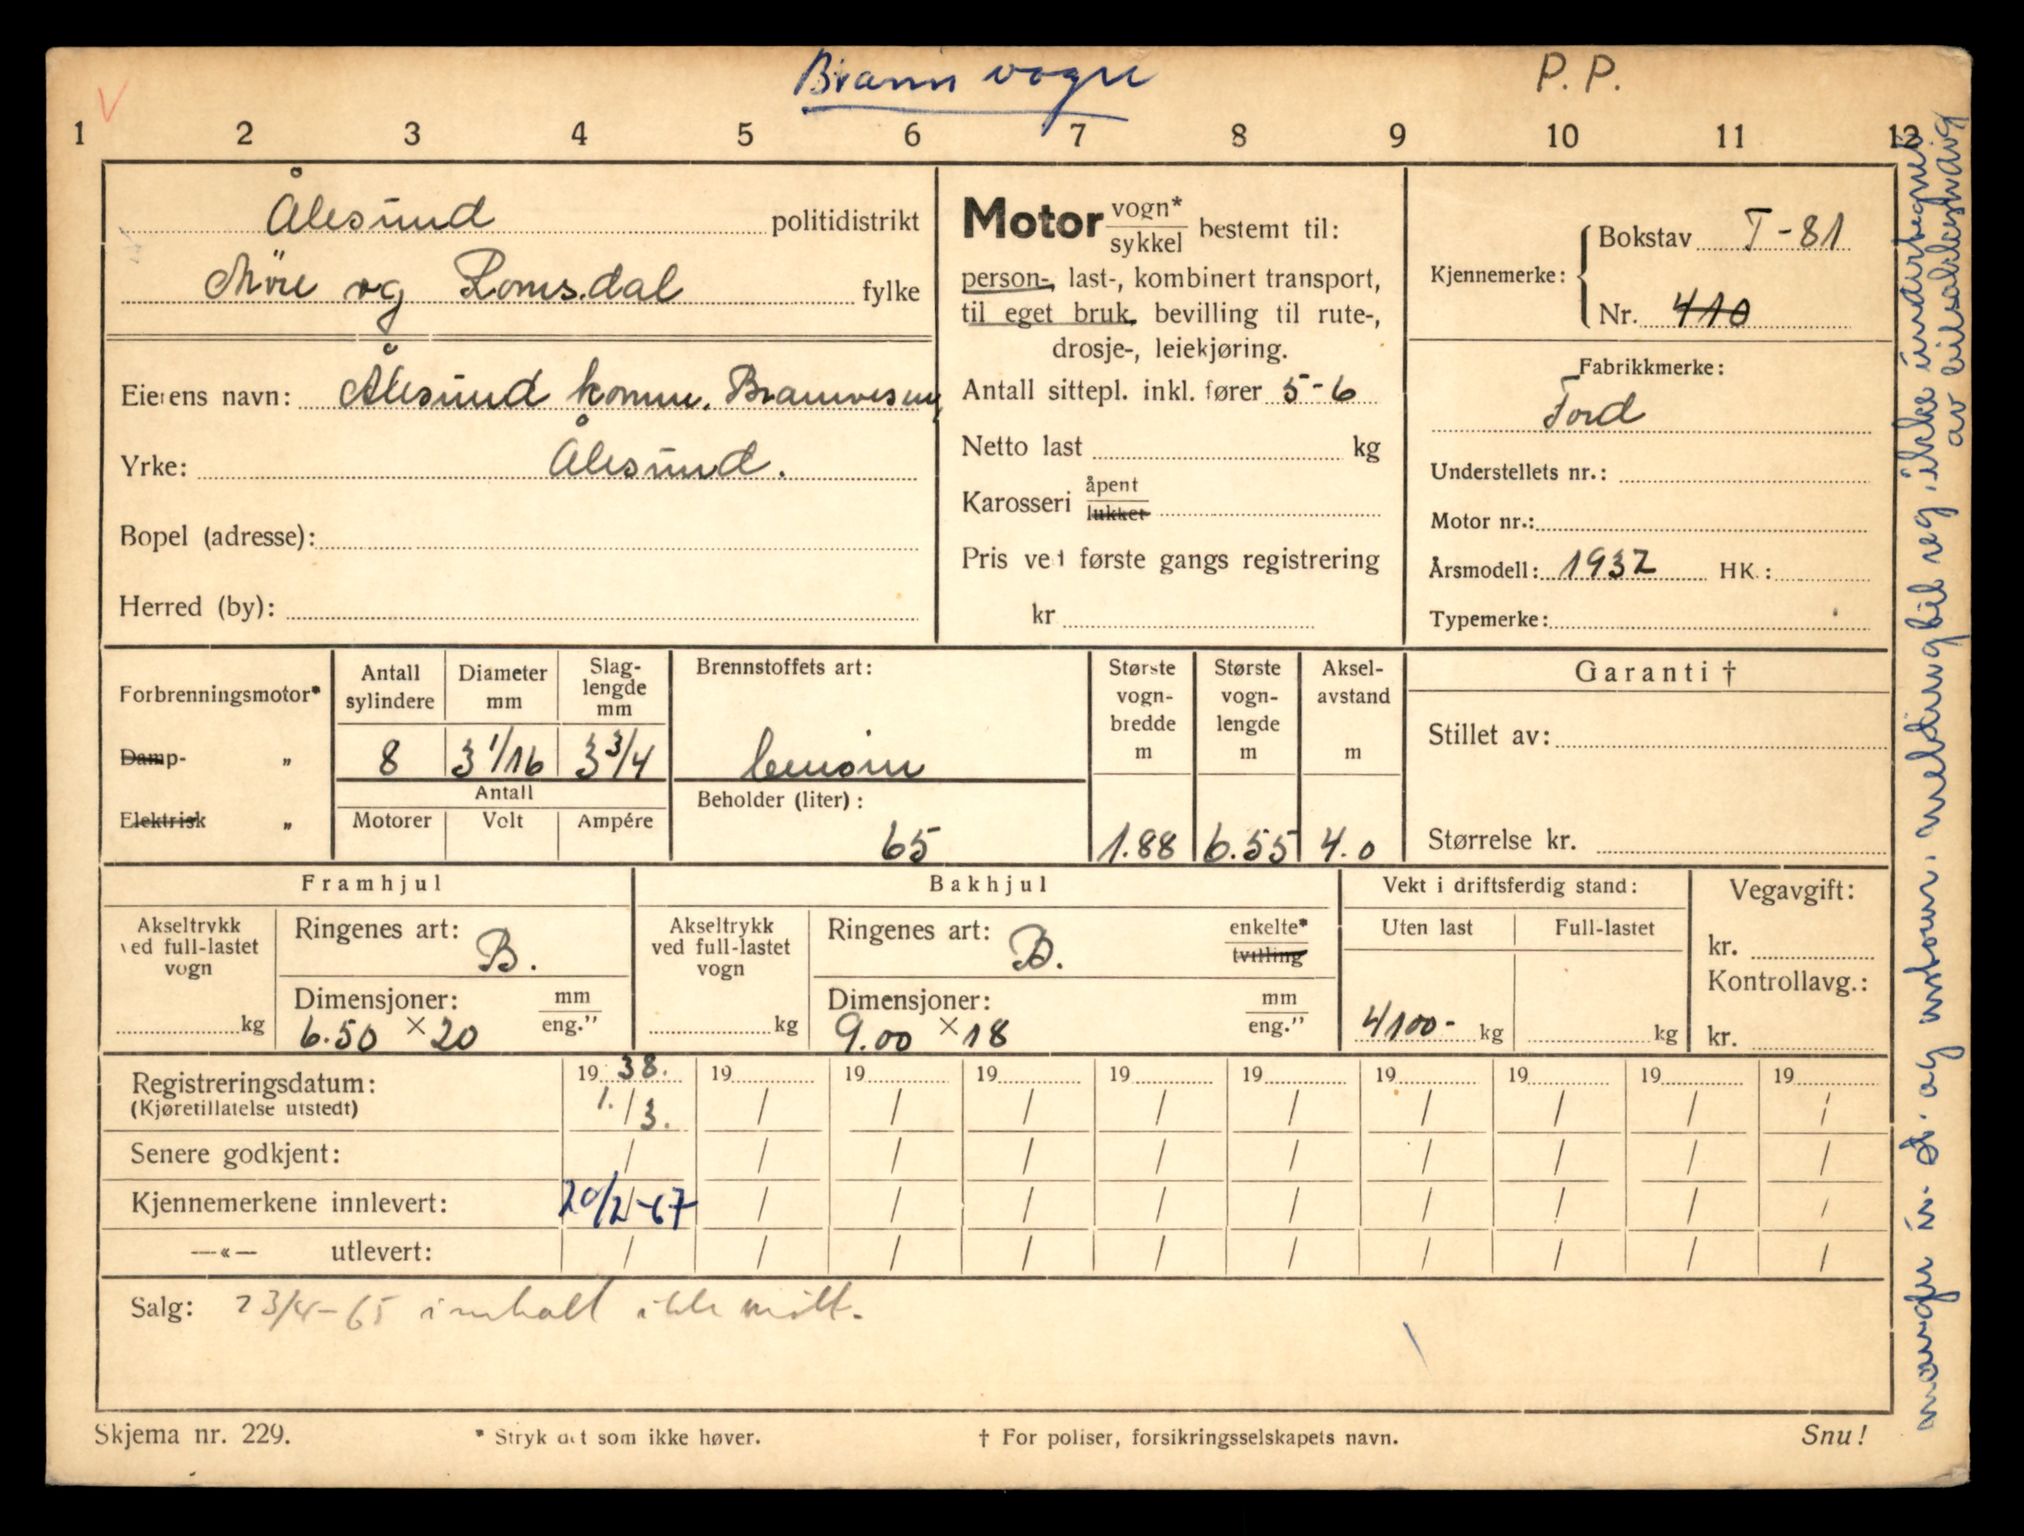 Brannvogn
P. P.
V
1 2 3 4 5 6 7 8 9 10 11 12
Ålesund politidistrikt
Möre og Romsdal fylke
Eierens navn: Ålesund komm. Brannvesen,
Yrke: Ålesund.
Bopel (adresse):
Herred (by):
Motor vogn* / sykkel bestemt til:
person-, last-, kombinert transport,
til eget bruk, bevilling til rute-,
drosje-, leiekjøring.
Antall sittepl. inkl. fører 5-6
Netto last kg
Karosseri åpent / lukket
Pris ved første gangs registrering
kr
Kjennemerke: Bokstav T-81
Nr. 410
Fabrikkmerke:
Ford
Understellets nr.:
Motor nr.:
Årsmodell: 1932 HK.:
Typemerke:
Forbrenningsmotor*
Damp- „
Elektrisk „
Antall sylindere 8
Diameter mm 3 1/16
Slag-lengde mm 3 3/4
Antall
Motorer Volt Ampére
Brennstoffets art:
bensin
Beholder (liter):
65
Største vogn-bredde m 1.88
Største vogn-lengde m 6.55
Aksel-avstand m 4.0
Garanti †
Stillet av:
Størrelse kr.
Framhjul
Akseltrykk ved full-lastet vogn kg
Ringenes art: B.
Dimensjoner: mm / eng."
6.50 × 20
Bakhjul
Akseltrykk ved full-lastet vogn kg
Ringenes art: B. enkelte* / tvilling
Dimensjoner: mm / eng."
9.00 × 18
Vekt i driftsferdig stand:
Uten last Full-lastet
4100- kg kg
Vegavgift:
kr.
Kontrollavg.:
kr.
Registreringsdatum: 19 38. 19 19 19 19 19 19 19 19 19
(Kjøretillatelse utstedt) 1./3. / / / / / / / / /
Senere godkjent: / / / / / / / / / /
Kjennemerkene innlevert: 20/2-67 / / / / / / / / /
—«— utlevert: / / / / / / / / / /
Salg: 23/4-65 innkalt ikke mött.
Skjema nr. 229.
* Stryk det som ikke høver.
† For poliser, forsikringsselskapets navn.
Snu!
mangler og melding bil reg, ikke
av